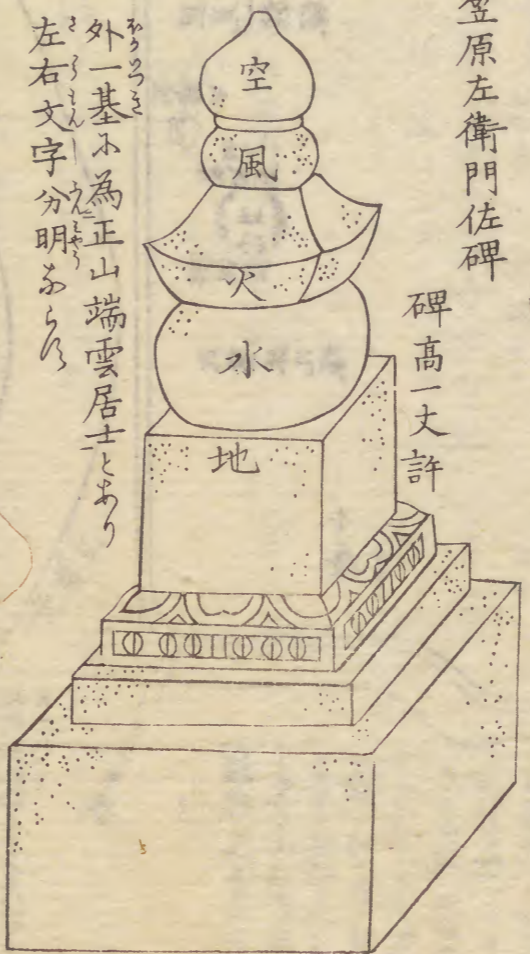 笠原左衛門佐碑
碑高一丈許
空
風
火
水
地
外一基に為正山端雲居士とあり
左右文字分明ならす